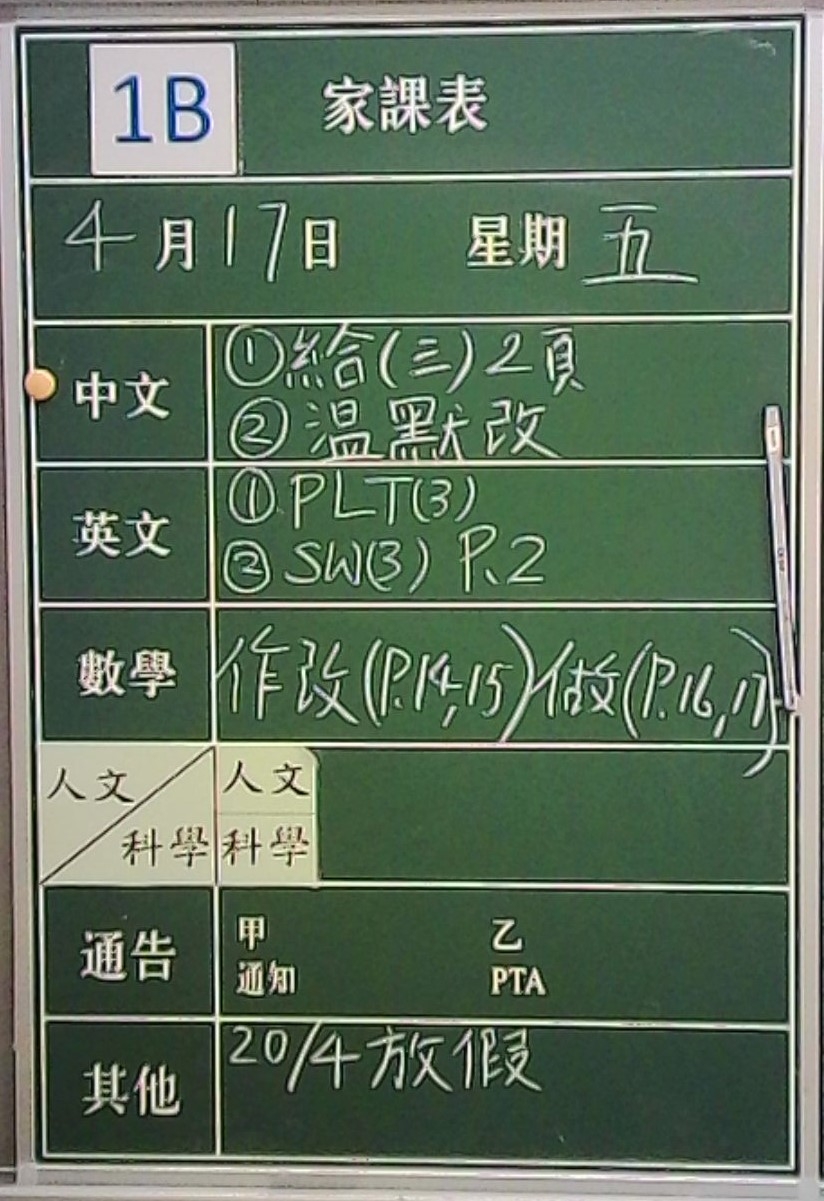 1B 家課表
4月17日 星期五
中文
①給(三)2頁
②温默改
英文
①PLT(3)
②SW(3) P.2
數學
作改(P.14,15)做(P.16,17)
人文
科學
人文
科學
通告
甲 乙
通知 PTA
其他
20/4放假